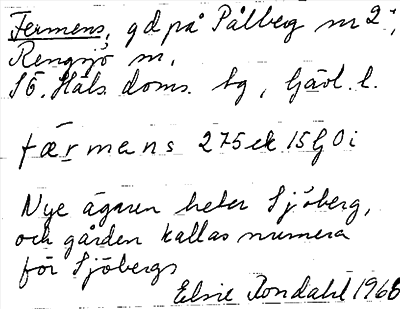 Fermens, gd på Pålberg m 2,
Rengsjö sn,
SÖ. Häls. doms. bg, Gävl. l.
færmens 275 ek 15G0i
Nye ägaren heter Sjöberg,
och gården kallas numera
för Sjöbergs
Elsie Rondahl 1968